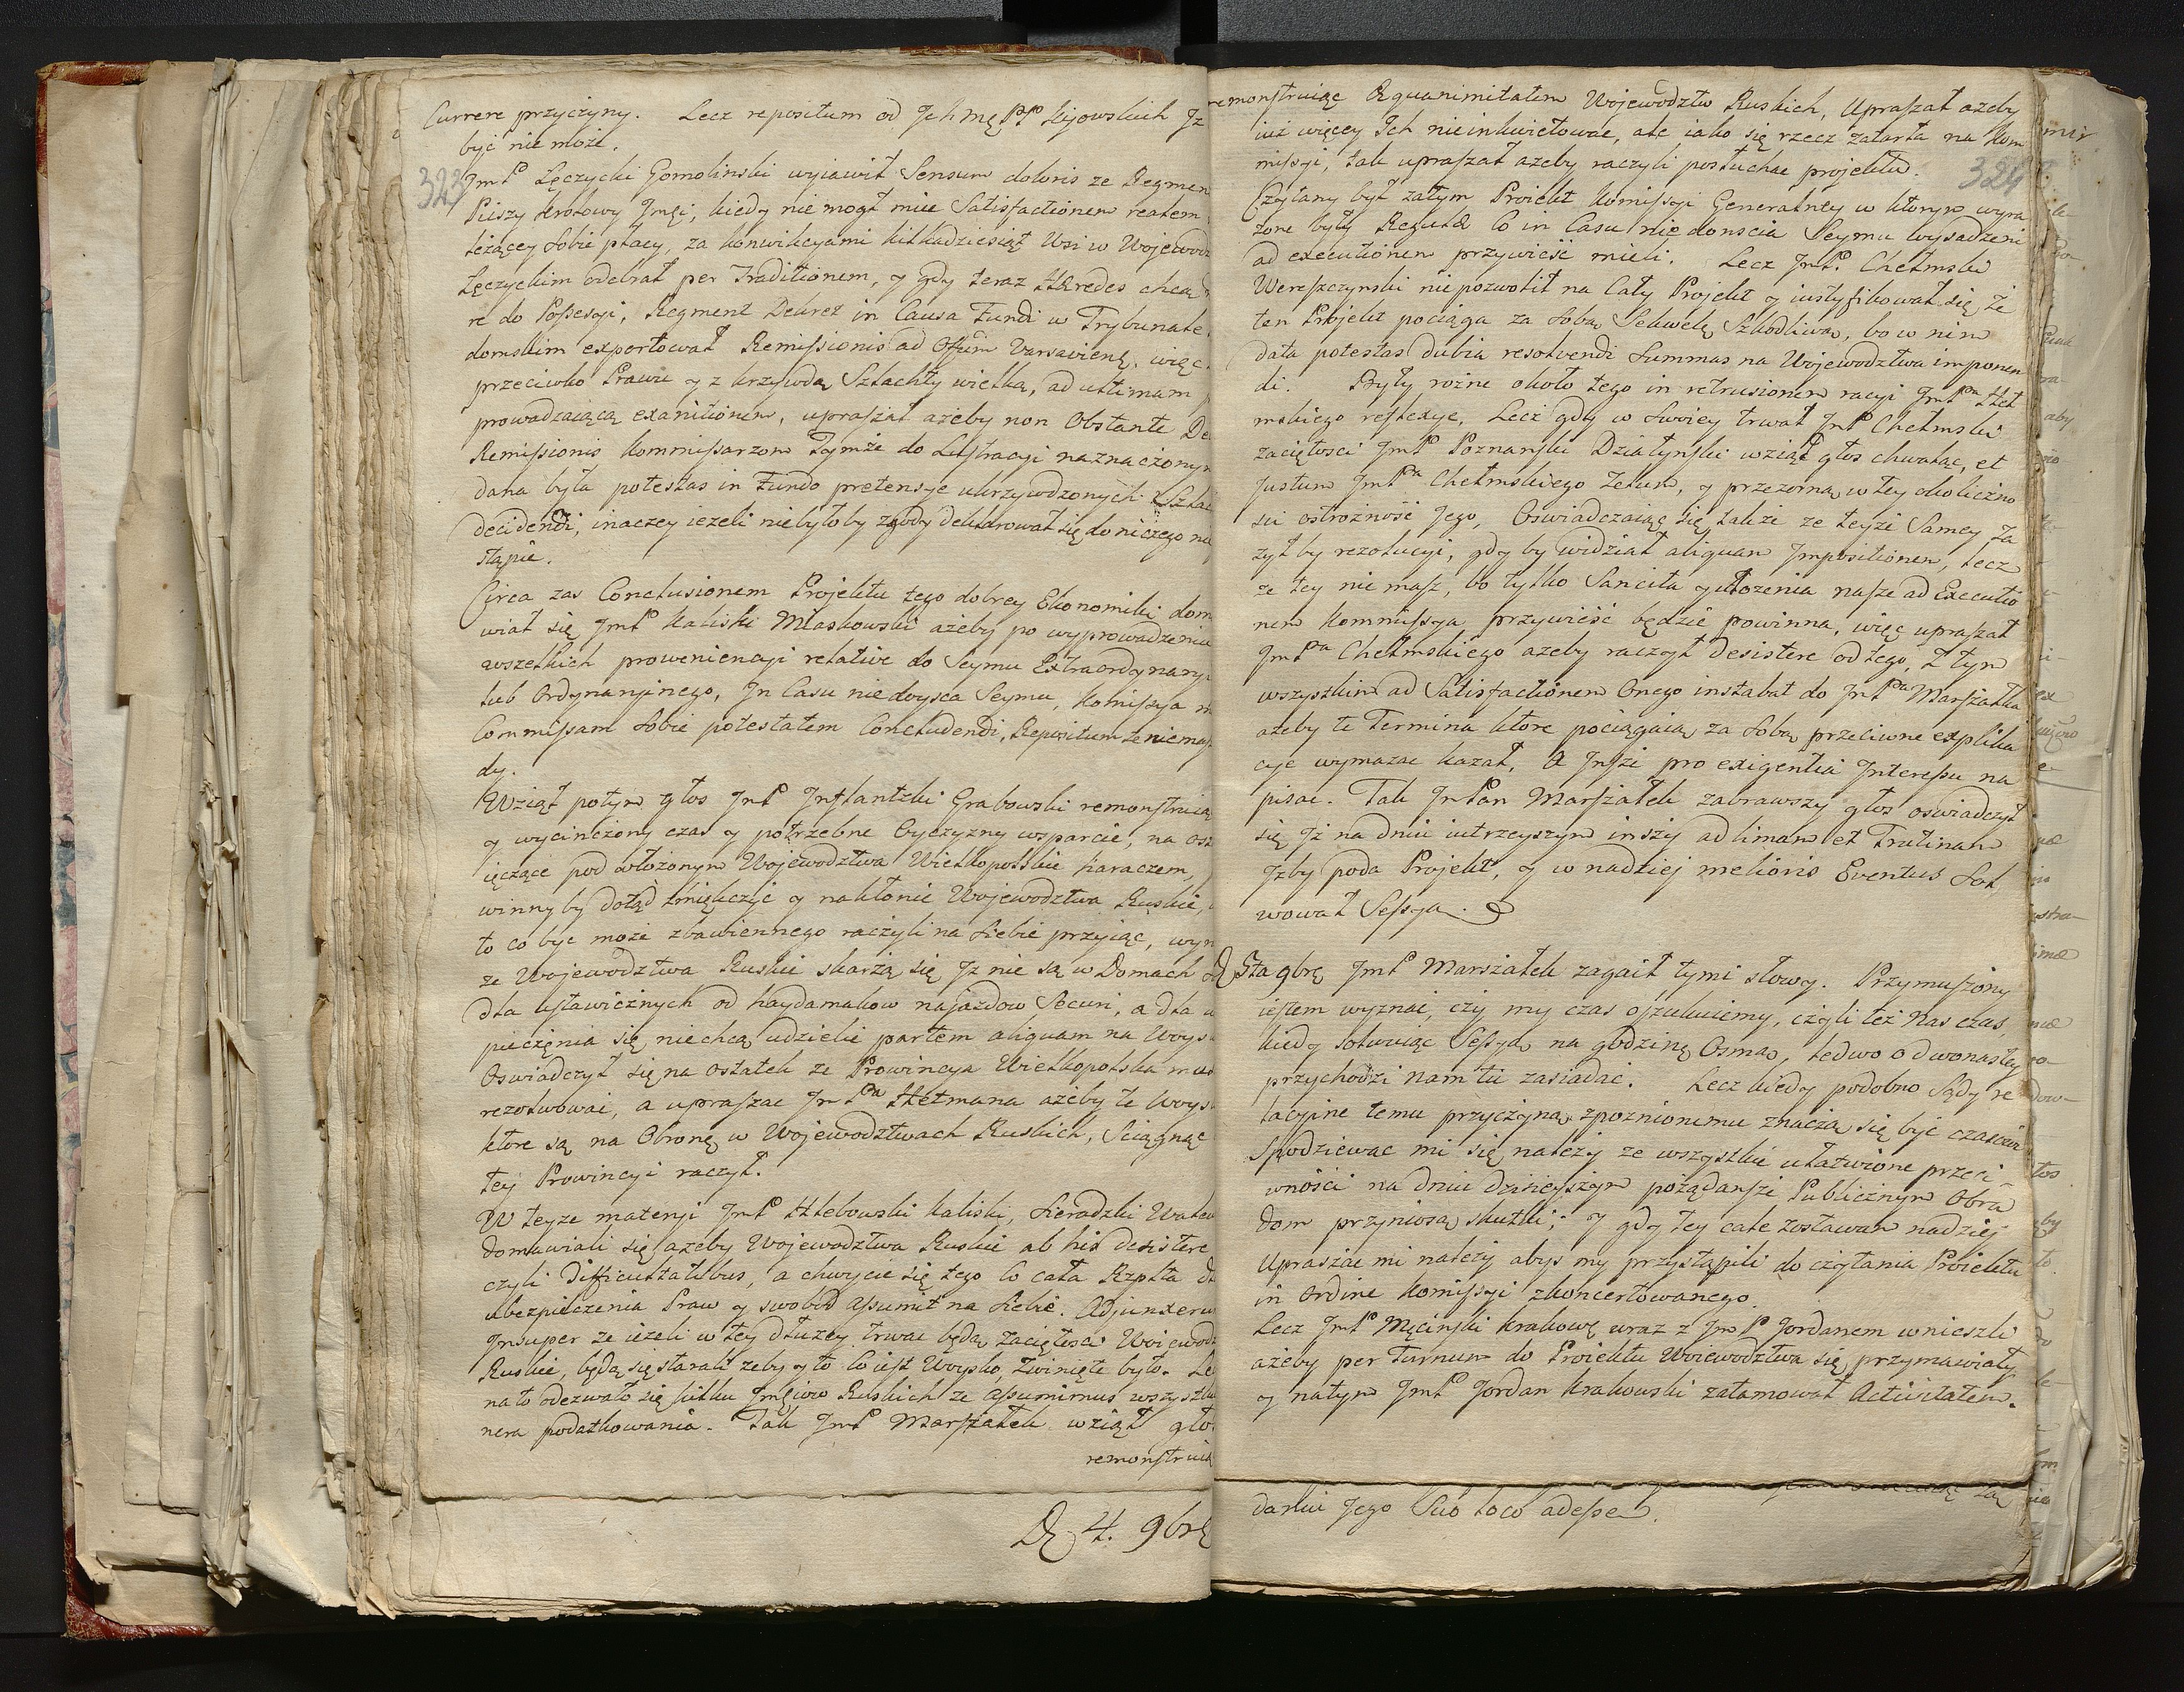 Currere przyczyny. Lecz repositum od Jchmę PP Kijowskich Jz
być nie może.
323
JmP Lęczycki Gomolinski wyiawił Sensum doloris ze Regmen
Pieszy Krolowy Jmęi, kiedy nie mogł mieć Satisfactionem realem
leżącey sobie płacy, za konwikcyami kilkadziesiąt Wsi w Wojewodz
Łęczyckim odebrał per Traditionem, y gdy teraz Hæredes chcą
re do Possesyi, Regment Dekret in Causa Fundi w Trybunale
domskim exportował Remissionis ad Offum Varsavienę, więc
przeciwko Prawu y z krzywdą Szlachty wielką, ad ultimam
prowadzaiącą exanitionem, upraszał ażeby non Obstante De
Remissionis Kommissarzom Tymże do Lustracyi naznaczonym
dana była potestas in Fundo pretensye ukrzywdzonych Szlac
decidendi, inaczey ieżeli niebyłoby zgody deklarował się do niczego nie
stąpie.
Circa zas Conclusionem Projektu tego dobrey Ekonomiki dom
wiał się JmP Kaliski Miaskowski ażeby po wyprowadzeniu
wszelkich proweniencyi relative do Seymu Extraordynaryi
lub Ordynaryinego, Jn Casu niedoyscia Seymu, Komissya m
Commissam sobie potestatem Concludendi, Repositum że niemasz
dy.
Wziął potym głos JmP Jnflantzki Grabowski remonstruiąc
y wycinczony czas y potrzebne Oyczyzny wsparcie, na ost
ięczące pod włożonym Wojewodztwa Wielkopolskie Haraczem,
winny by dotąd zmiękczyć y nakłonic Wojewodztwa Ruskie,
to co byc może zbawiennego raczyli na siebie przyiąc, wym
ze Wojewodztwa Ruskie skarżą się Jz nie są w Domach
dla Ustawicznych od haydamakow najazdow Securi, a dla u
pieczęnia się niechcą udzielic partem aliquam na Woys
Oswiadczył się na ostatek ze Prowincya Wielkopolska mus
rezolwowac, a upraszac JmPa Hetmana ażeby te Woys
ktore są na Obronę w Wojewodztwach Ruskich, Sciągnąc
tey Prowincyi raczył.
W teyze materyi JmP Hlebowski Kaliski, Sieradzki Walew
domawiali się ażeby Wojewodztwa Ruskie ab his desistere
czyli Difficultatibus, a chwycie się tego Co cała Rzplta dl
ubezpieczenia Praw y swobod assumit na siebie. Adjunxeru
Jnsuper ze ieżeli w tey dłuzey trwac będą zaciętosci Woiewodz
Ruskie, będą się starali zeby y to Co iest Woysko, Zwinięte było. Le
na to odezwało się kilku Jmęiow Ruskich ze assumimus wszystkie
nera podatkowania. Tak JmP Marszałek wziął gło
remonstruią
De 4. 9brę
remonstruiąc Æquanimitatem Wojewodztw Ruskich, Upraszał ażeby
iuż więcey Jch nieinkwietowac, ale iako się rzecz zatarła na Kom
missyi, tak upraszał azeby raczyli posłuchac projektu.
324
Czytany był zatym Proiekt Komissyi Generalney w ktorym wyra
żone były Regulæ Co in Casu niedonscia Seymu wysadzeni
ad executionem przywieść mieli. Lecz JmP Chełmski
Wereszczynski niepozwolił na Cały Projekt y iustyfikował się że
ten Projekt pociąga za sobą Sekwelę Szkodliwą, bo w nim
data potestas dubia resolvendi Summas na Wojewodztwa imponen
di. Były rożne około tego in retrusionem racyi JmPa Heł
mskiego reflexye, Lecz gdy w swoiey trwał JmP Chełmski
zaciętosci JmP Poznański Działyński wziął głos chwaląc, et
Justum JmPa Chełmskiego Zelum, y przezorną w tey okoliczno
sci ostrożność Jego, Oswiadczaiąc się także ze teyże Samey Za
żył by rezolucyi, gdy by widział aliquam Jmpositionem, lecz
ze tey nie masz, bo tylko Sancita y ułozenia nasze ad Executio
nem Kommissya przywieść będzie powinna, więc upraszał
JmPa Chełmskiego azeby raczył desistere od tego, z tym
wszystkim ad Satisfactionem Onego instabat do JmPa Marszałka
ażeby te Termina ktore pociągaią za sobą przeciwne explika
cye wymazac kazał, a Jnsze pro exigentia Jnteressu na
pisac. Tak JmPan Marszałek zabrawszy głos oswiadczył
się Jż na dniu iutrzeyszym inszy ad limam et Trutinam
Jzby poda Projekt, y w nadziei melioris Eventus Sol
wował Sessyą.
D 5ta 9brę JmP Marszałek zagaił tymi słowy. Przymuszony
iestem wyznać, czy my czas oszukuiemy, czyli też nas czas
kiedy solwuiąc Sessyą na godzinę Osmą, ledwo o dwonastey
przychodzi nam tu zasiadać. Lecz kiedy podobno Sądy re
lacyine temu przyczyną, zpoznionemu znaczą się być czasowi
Spodziewac mi się należy ze wszystkie ułatwione przeci-
wności na dniu dzisieyszym pożądansze Publicznym Obra
dom przyniosą skutki; y gdy tey cale zostawam nadziej
Upraszać mi należy abyśmy przystąpili do czytania Proiektu
in Ordine Komissyi zkoncertowanego
Lecz JmP Męciński Krakowę wraz z JmP Jordanem wnieszli
ażeby per Turnum do Proiektu Woiewodztwa się przymawiały
y na tym JmP Jordan Krakowski zatamował Activitatem.
darlui Jego Suo loco adesse.